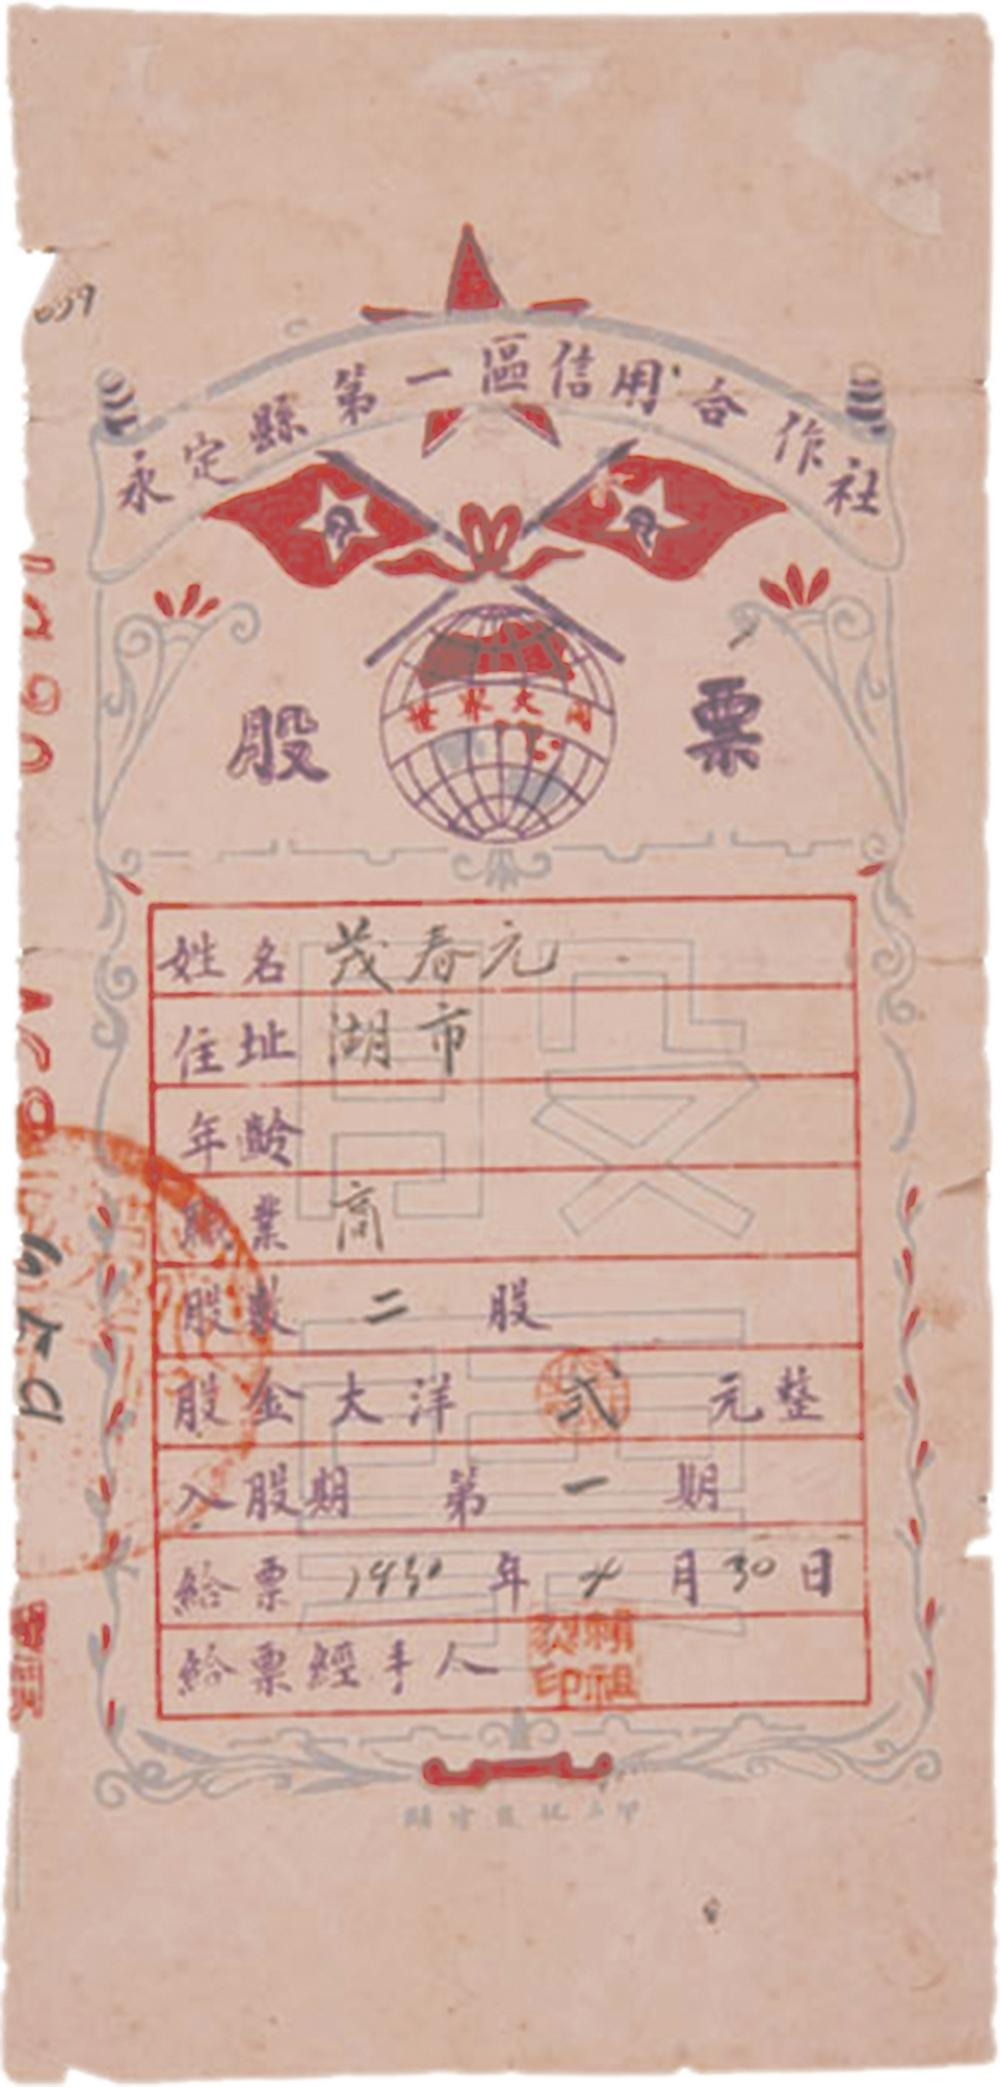 039
永定縣第一區信用合作社
世界大同
股票
姓名 茂春元
住址 湖市
年齡
職業 商
股數 二 股
股金大洋 弍 元整
入股期 第 一 期
給票 1930 年 4 月 30 日
給票經手人